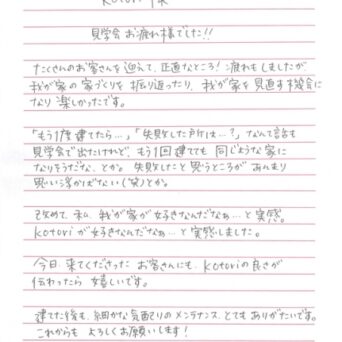 kotori 様
見学会 お疲れ様でした!!
たくさんのお客さんを迎えて、正直なところ!疲れもしましたが
我が家の家づくりを振り返ったり、我が家を見直す機会に
なり 楽しかったです。
「もう1度建てたら…」「失敗した所は…?」なんて話も
見学会で出たけれど、もう1回建てても 同じような家に
なりそうだな、とか。失敗したと思うところがあんまり
思い浮かばない(笑)とか。
改めて、私、我が家が好きなんだなぁ…と実感。
kotoriが好きなんだなぁ…と実感しました。
今日、来てくださった お客さんにも、kotoriの良さが
伝わったら 嬉しいです。
建てた後も、細かな気配りのメンテナンス、とても ありがたいです。
これからも よろしくお願いします!